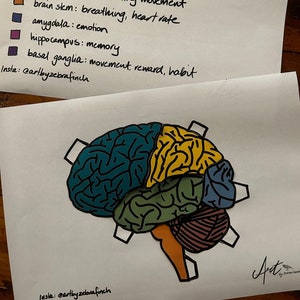 movement
brain stem: breathing, heart rate
amygdala: emotion
hippocampus: memory
basal ganglia: movement reward, habit
Insta: @artbyzebrafinch
Art
Insta: @artbyzebrafinch